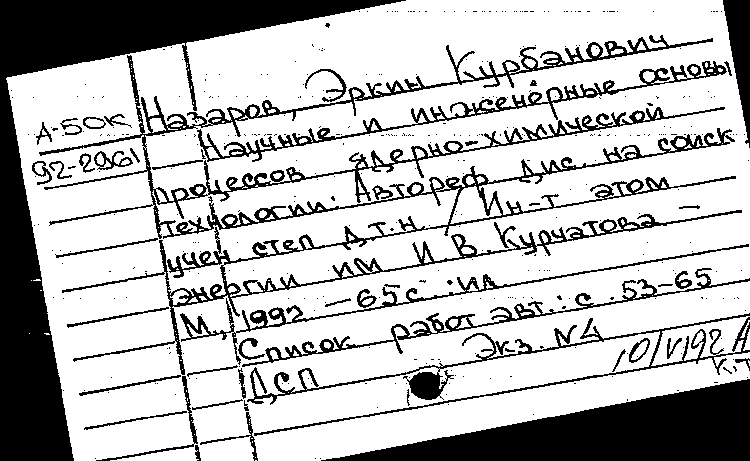 А-50К
92-2961
Назаров, Эркин Курбанович
Научные и инженерные основы
процессов ядерно-химической
технологии: Автореф дис. на соиск
учен. степ д.т.н. / Ин-т атом
энергии им И. В. Курчатова –
М., 1992 – 65с. : ил
Список работ авт.: с. 53-65
ДСП Экз. N4
К.Т